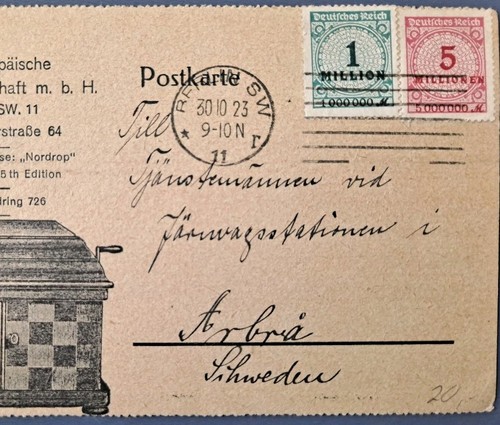 päische
schaft m. b. H.
SW. 11
rstraße 64
se: „Nordrop"
5th Edition
dring 726
Postkarte
BERLIN SW
30 10 23
9-10 N
* 11 r
Deutsches Reich
1
MILLION
1 000 000 M
Deutsches Reich
5
MILLIONEN
5 000 000 M
Till
Tjänstemannen vid
Järnvagsstationen i
Arbrå
Schweden
20,-